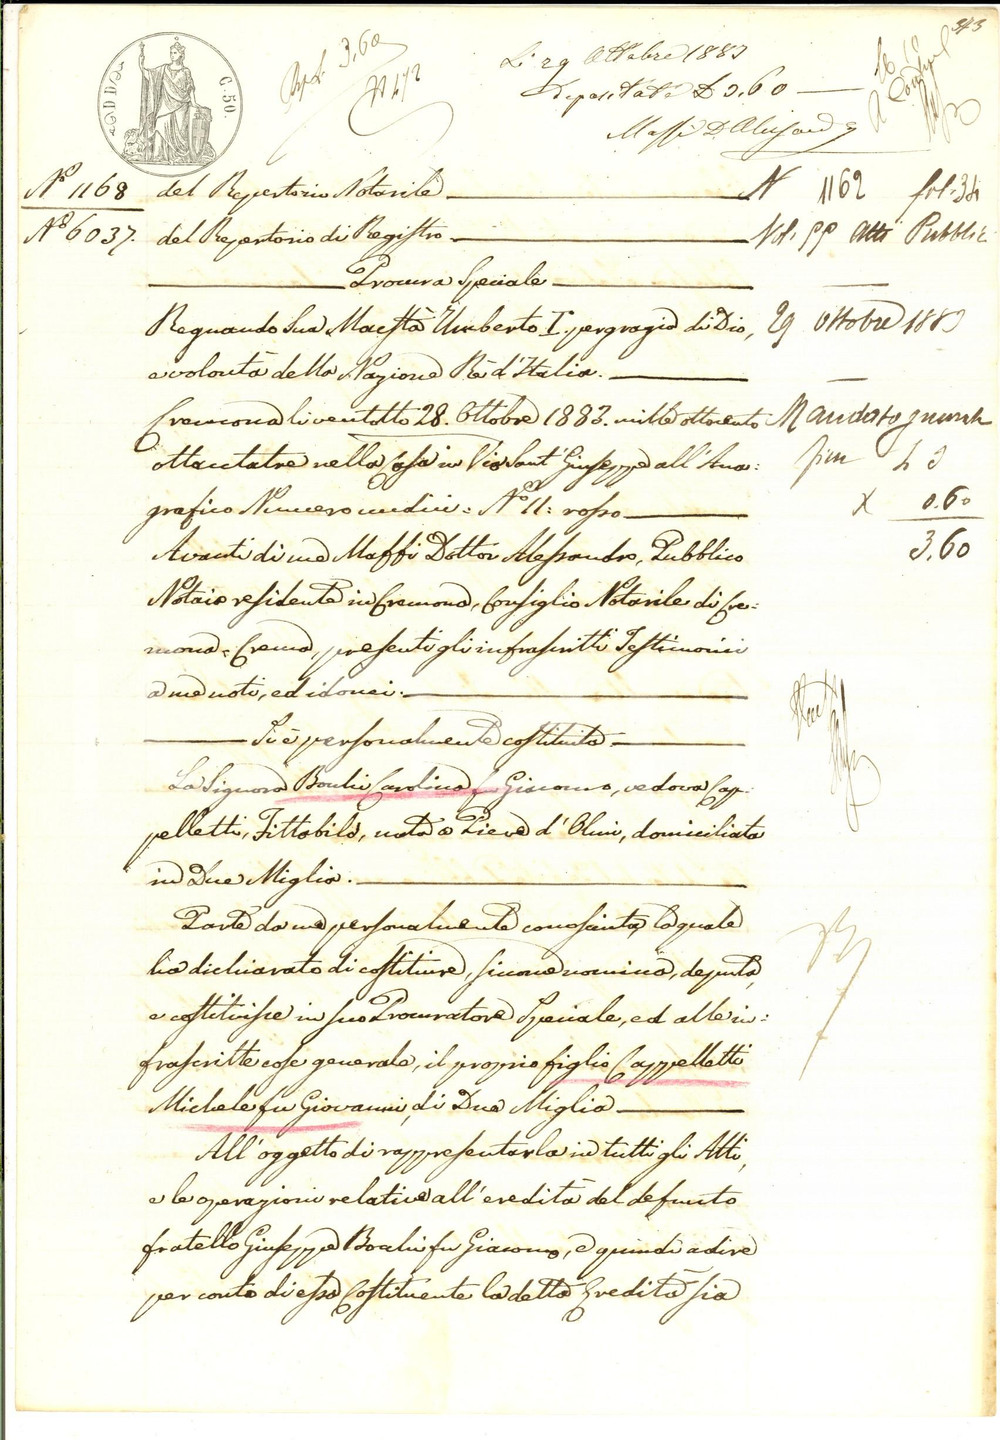 343
Rep. 3,60
Li 29 Ottobre 1883
Depositate £ 3.60
Maffi Dr. Alessandro
C. 50.
No. 1168 del Repertorio Notarile
N 1162 fol. 34
No. 6037. del Repertorio di Registro
Vol. 99 Atti Pubblici
Procura Speciale
Regnando Sua Maestà Umberto I. per grazia di Dio,
29 Ottobre 1883
e volontà della Nazione Rè d'Italia.
Cremona li ventotto 28. Ottobre 1883. mille ottocento
Mandato generale
ottantatre nella Casa in Via Sant Giuseppe all'Ana:
fissa £ 3
grafico Numero undici = No. 11 = rosso
X 0.60
Avanti di me Maffi Dottor Alessandro, Pubblico
3.60
Notaio residente in Cremona, Consiglio Notarile di Cre=
mona=Crema, presenti gli infrascritti Testimonii
a me noti, ed idonei.
Si è personalmente costituita
La Signora Boulii Carolina fu Giacomo, vedova Cap=
pelletti, Fittabile, nata a Pieve d'Olmi, domiciliata
in Due Miglia.
Parte da me personalmente conosciuta, la quale
ha dichiarato di costituire, siccome nomina, deputa,
e costituisce in suo Procuratore Speciale, ed alle in=
frascritte cose generale, il proprio figlio Cappelletti
Michele fu Giovanni, di Due Miglia
All'oggetto di rappresentarla in tutti gli Atti,
e le operazioni relative all'eredità del defunto
fratello Giuseppe Boulii fu Giacomo, e quindi adire
per conto di essa Costituente la detta Eredità sia